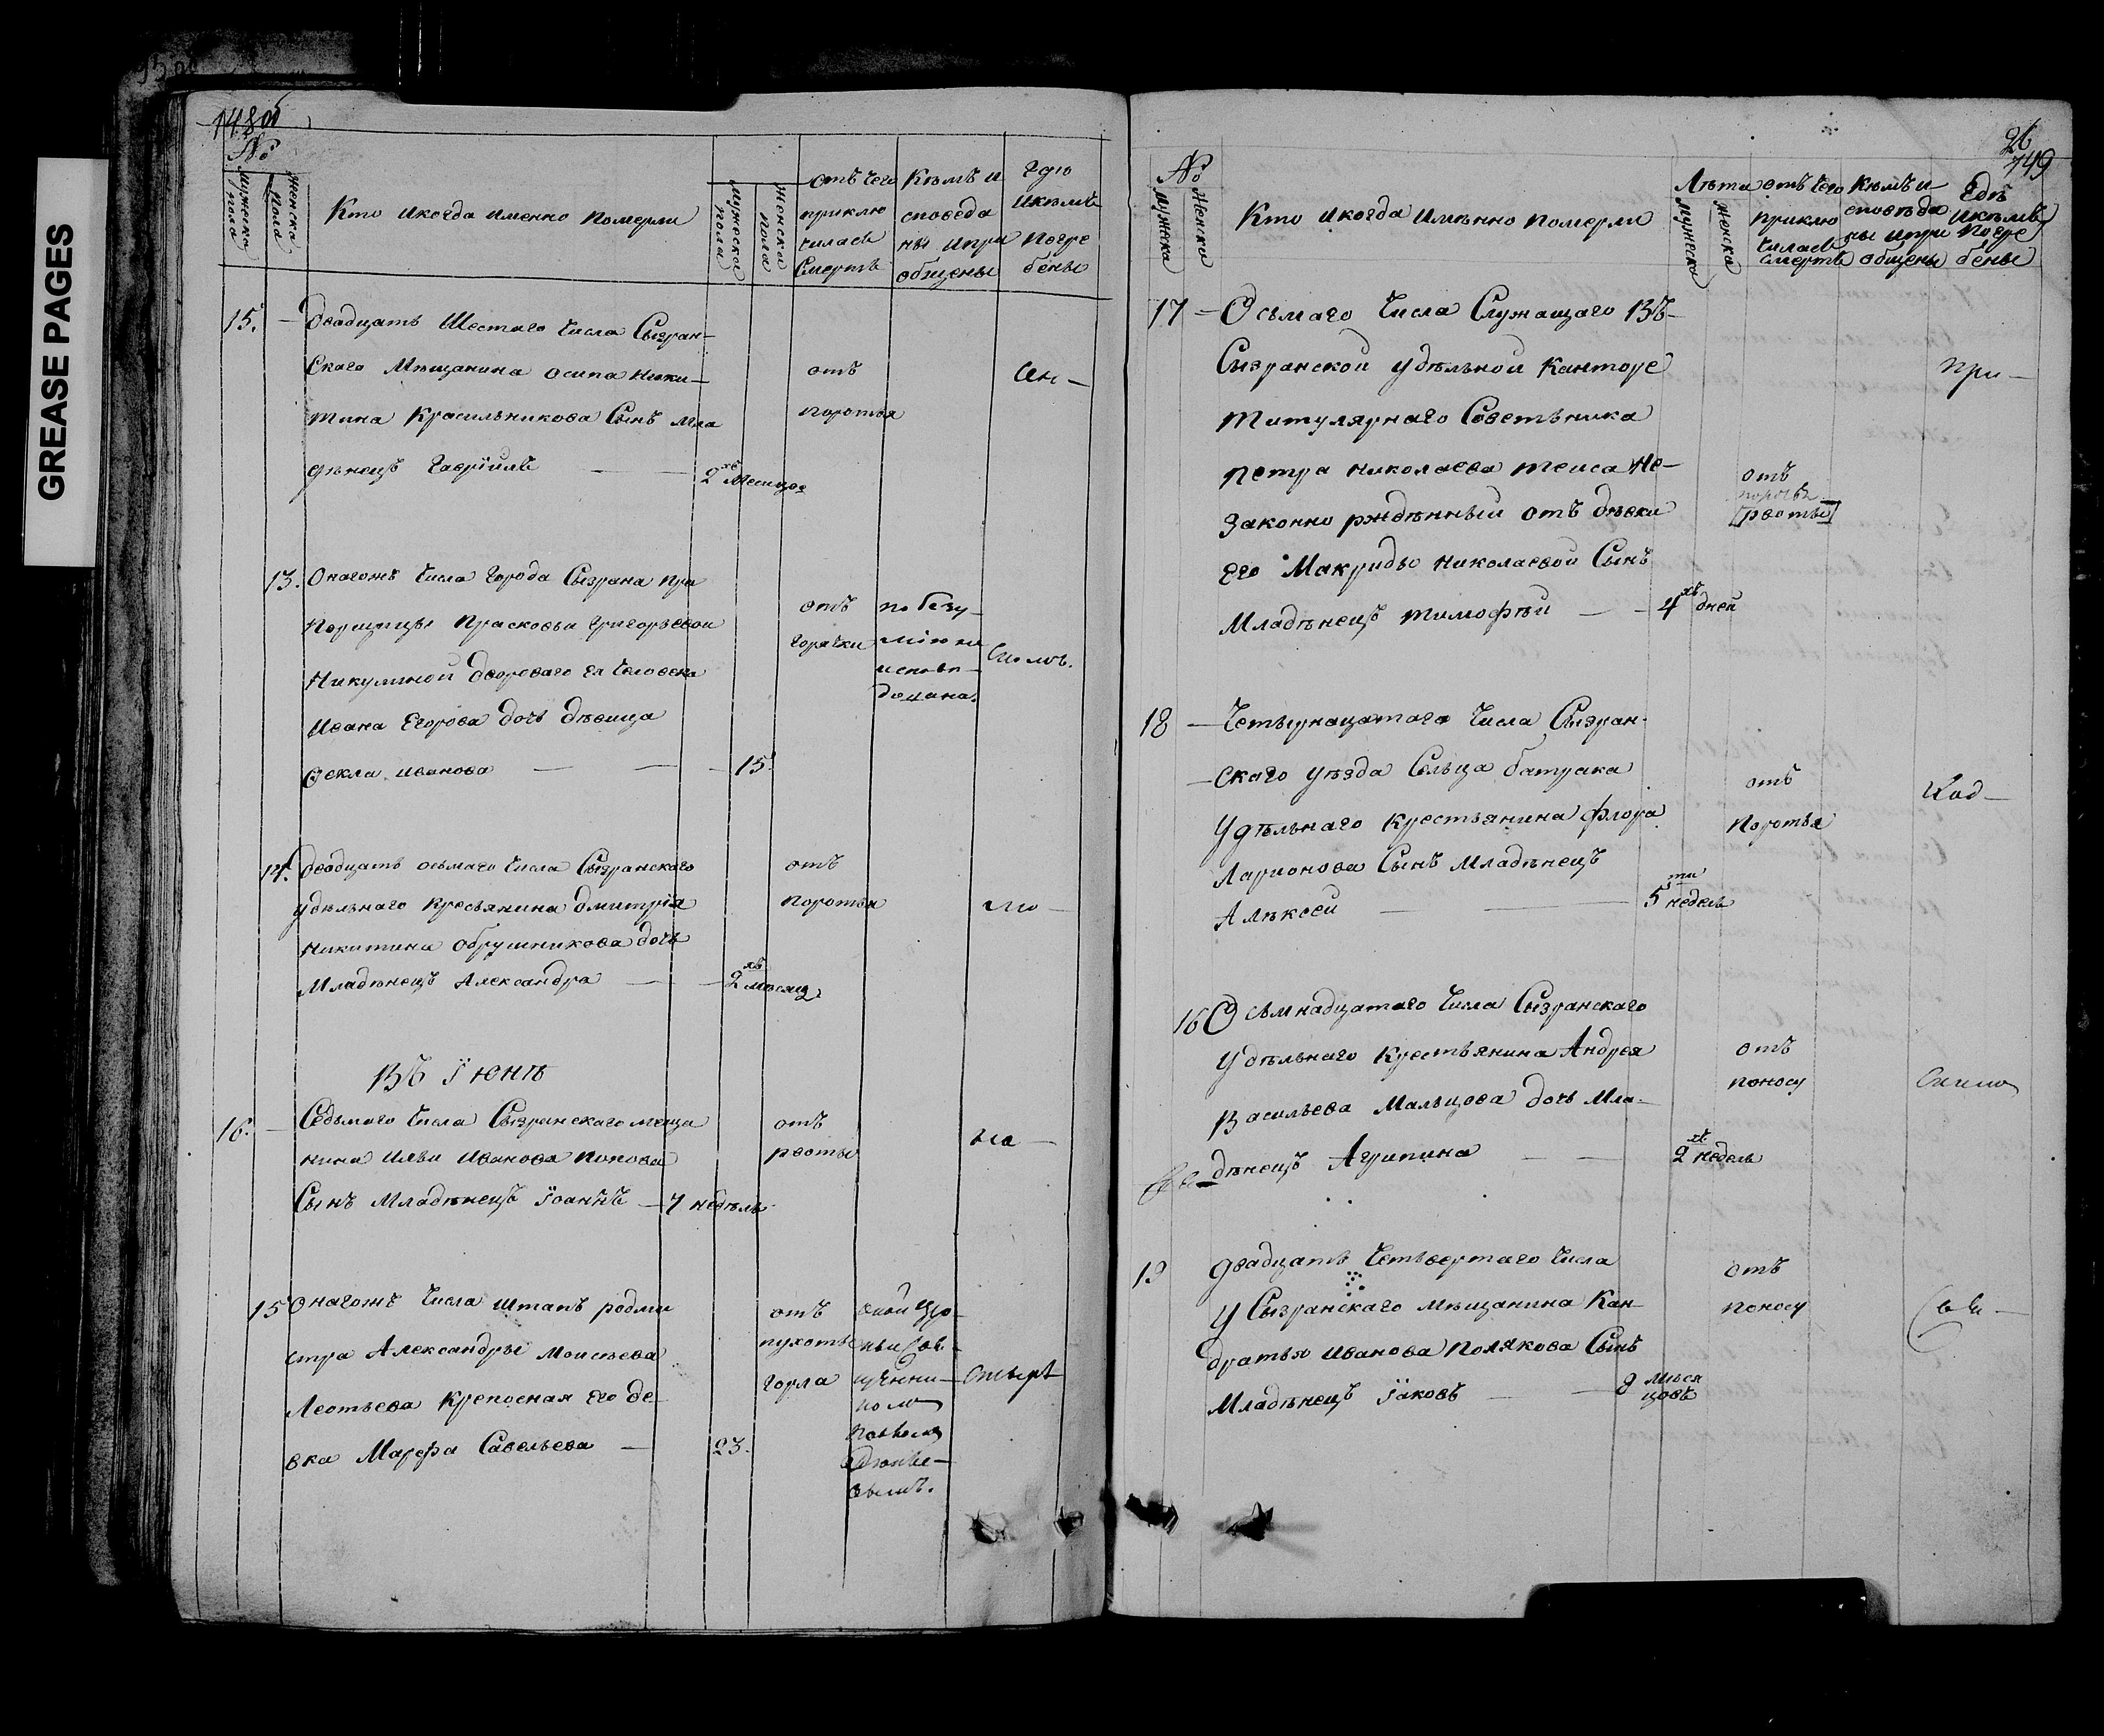 GREASE PAGES
148об
№
мужеска пола
женска пола
Кто и когда именно померли
мужеска пола
женска пола
отъ чего приклю чиласъ Смерть
Кѣмъ и споведа ны и при общены
Гдѣ и кѣмъ погре бены
15. — двадцать Шестаго числа Сызран-
Скаго Мѣщанина осипа Ники-
тина Красильникова Сынъ мла
дѣнецъ Гаврїилъ — — 2хъ Месяцов
отъ
поротья
13. Онагожъ числа города Сызрана при
Порщицы Прасковьи Григорьевой
Никулиной двороваго Ея человека
Ивана Егорова дочь дѣвица
Фекла Иванова — — 15
отъ
горячки
по безу-
мію не
исповѣ-
дована.
14. двадцать осьмаго числа Сызранскаго
удѣльнаго кресьянина дмитрія
Никитина Обрушникова дочь
Младѣнецъ Александра — — 2хъ месяц.
отъ
поротья
Въ Їюнѣ
16. — Седьмаго числа Сызранскаго меща
нина Ильи Иванова Попова
Сынъ Младѣнецъ Їоаннъ — 7 недѣль
отъ
рвоты
15 Онагожъ числа штапъ родми
стра Александры Моисѣева
Леотьева крепосная Его де
вка Марфа Савельева — 23.
отъ
пухоты
горла
26
749
№
мужеска
женска
Кто и когда имѣнно померли
Лѣта
мужеска
женска
отъ чего приклю чиласъ смерть
Кѣмъ и споведа ны и при общены
Гдѣ и кѣмъ погре бены
17 — Осьмаго числа Служащаго Въ-
Сызранской удѣльной Канторе
Титулярнаго Советьника
Петра Николаева Теиса Не-
законно рждѣнный отъ дѣвки
Его Макриды Николаевой Сынъ
Младѣнецъ Тимофѣй — — 4хъ дней
отъ
[рвоты]
при-
18 — Четырнацатаго числа Сызран-
-скаго уѣзда Сельца батрака
Удѣльнаго Крестьянина Флора
Ларионова Сынъ Младѣнецъ
Алѣксей — — 5ти недель
отъ
Поротья
16 Осьмнадцатаго числа Сызранскаго
Удѣльнаго Крестьянина Андрея
Васильева Мальцова дочь Мла-
дѣнецъ Агрипина — — 2хъ недель
отъ
поносу
19 двадцать Четьвертаго числа
У Сызранскаго Мѣщанина Кан-
дратья Иванова Полякова Сынъ
Младѣнецъ Їаковъ — — 8 мѣся
цовъ
отъ
поносу